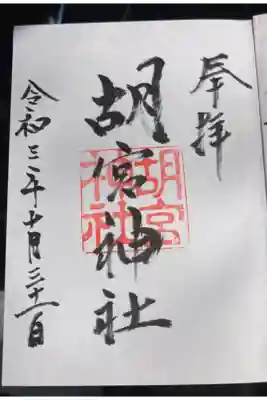 奉拝
胡宮神社
胡宮神社
令和三年十月三十一日